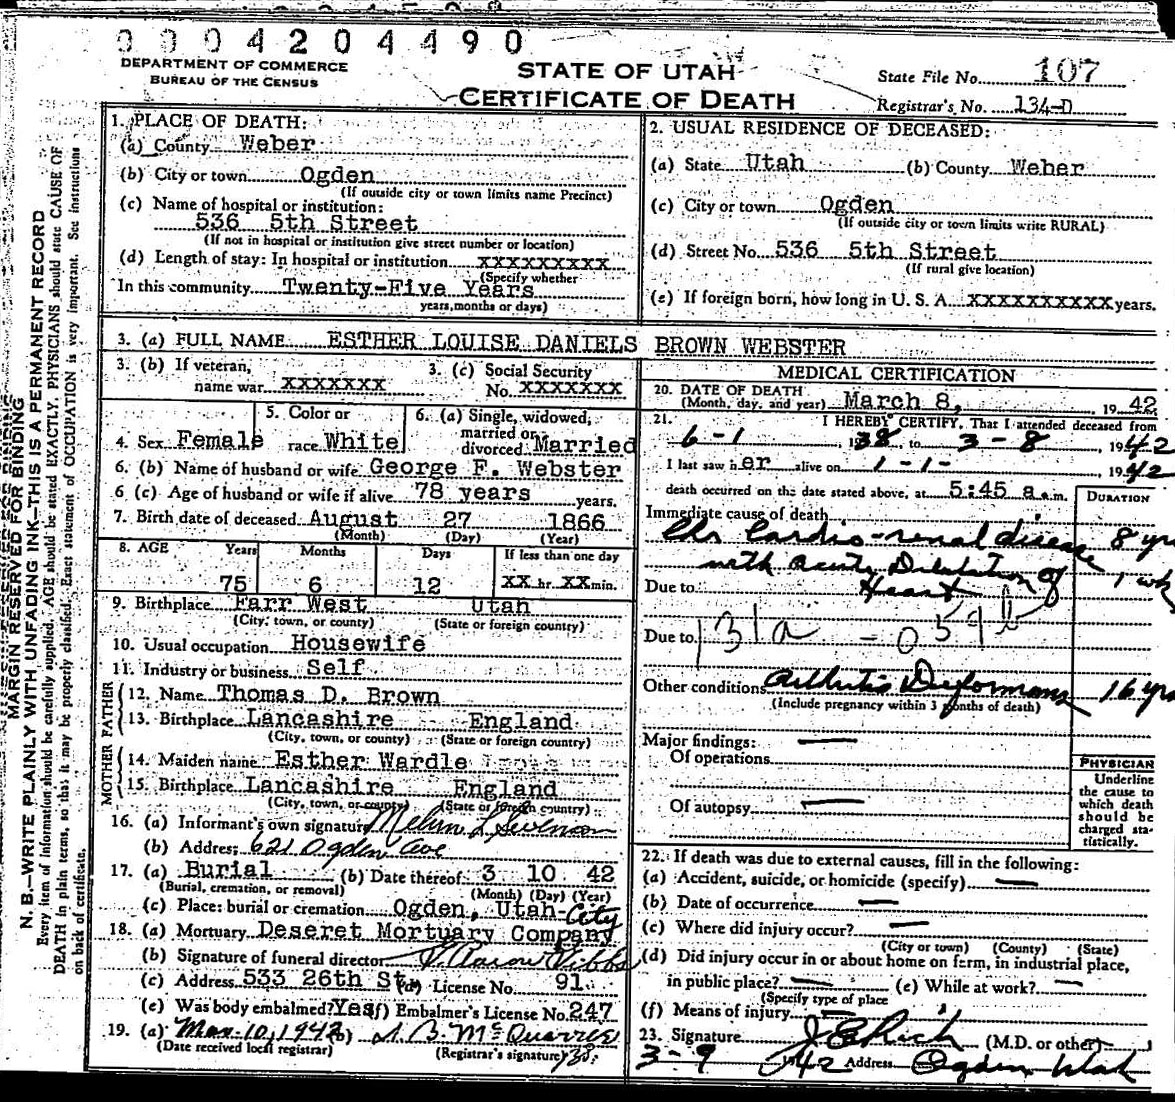 0 0 0 4 2 0 4 4 9 0
DEPARTMENT OF COMMERCE
BUREAU OF THE CENSUS
STATE OF UTAH
CERTIFICATE OF DEATH
State File No. 107
Registrar's No. 134-D
N. B.—WRITE PLAINLY WITH UNFADING INK—THIS IS A PERMANENT RECORD
MARGIN RESERVED FOR BINDING
Every item of information should be carefully supplied. AGE should be stated EXACTLY. PHYSICIANS should state CAUSE OF
DEATH in plain terms, so that it may be properly classified. Exact statement of OCCUPATION is very important. See instructions
on back of certificate.
1. PLACE OF DEATH:
(a) County Weber
(b) City or town Ogden
(If outside city or town limits name Precinct)
(c) Name of hospital or institution:
536 5th Street
(If not in hospital or institution give street number or location)
(d) Length of stay: In hospital or institution xxxxxxxxx
(Specify whether
In this community Twenty-Five Years
years, months or days)
2. USUAL RESIDENCE OF DECEASED:
(a) State Utah (b) County Weber
(c) City or town Ogden
(If outside city or town limits write RURAL)
(d) Street No. 536 5th Street
(If rural give location)
(e) If foreign born, how long in U. S. A. xxxxxxxxxx years.
3. (a) FULL NAME ESTHER LOUISE DANIELS BROWN WEBSTER
3. (b) If veteran,
name war xxxxxxx
3. (c) Social Security
No. xxxxxxx
4. Sex Female
5. Color or
race White
6. (a) Single, widowed,
married or
divorced Married
6. (b) Name of husband or wife George F. Webster
6 (c) Age of husband or wife if alive 78 years years.
7. Birth date of deceased August 27 1866
(Month) (Day) (Year)
8. AGE Years Months Days If less than one day
75 6 12 XX hr. XX min.
9. Birthplace Farr West Utah
(City, town, or county) (State or foreign country)
10. Usual occupation Housewife
11. Industry or business Self
FATHER
12. Name Thomas D. Brown
13. Birthplace Lancashire England
(City, town, or county) (State or foreign country)
MOTHER
14. Maiden name Esther Wardle
15. Birthplace Lancashire England
(City, town, or county) (State or foreign country)
16. (a) Informant's own signature Melvin L Swenson
(b) Address 621 Ogden Ave
17. (a) Burial (b) Date thereof 3 10 42
(Burial, cremation, or removal) (Month) (Day) (Year)
(c) Place: burial or cremation Ogden, Utah-City
18. (a) Mortuary Deseret Mortuary Company
(b) Signature of funeral director
(c) Address 533 26th St (d) License No. 91
(e) Was body embalmed? Yes (f) Embalmer's License No. 247
19. (a) Mar. 10, 1942 (b)
(Date received local registrar) (Registrar's signature)
MEDICAL CERTIFICATION
20. DATE OF DEATH
(Month, day, and year) March 8, 19 42
21. I HEREBY CERTIFY, That I attended deceased from
6-1, 1938 to 3-8, 1942
I last saw her alive on 1-1-, 1942
death occurred on the date stated above, at 5:45 a.m.
DURATION
Immediate cause of death
Chr Cardio-renal disease 8 yrs
with acute Dilatation of 1 wk
Due to Heart
Due to 131a - 059b
Other conditions Arthritis Deformans 16 yrs
(Include pregnancy within 3 months of death)
Major findings: —
Of operations
Of autopsy —
PHYSICIAN
Underline
the cause to
which death
should be
charged sta-
tistically.
22. If death was due to external causes, fill in the following:
(a) Accident, suicide, or homicide (specify) —
(b) Date of occurrence —
(c) Where did injury occur? —
(City or town) (County) (State)
(d) Did injury occur in or about home on farm, in industrial place,
in public place? — (e) While at work? —
(Specify type of place
(f) Means of injury —
23. Signature J E Rich (M.D. or other)
3-9 1942 Address Ogden Utah